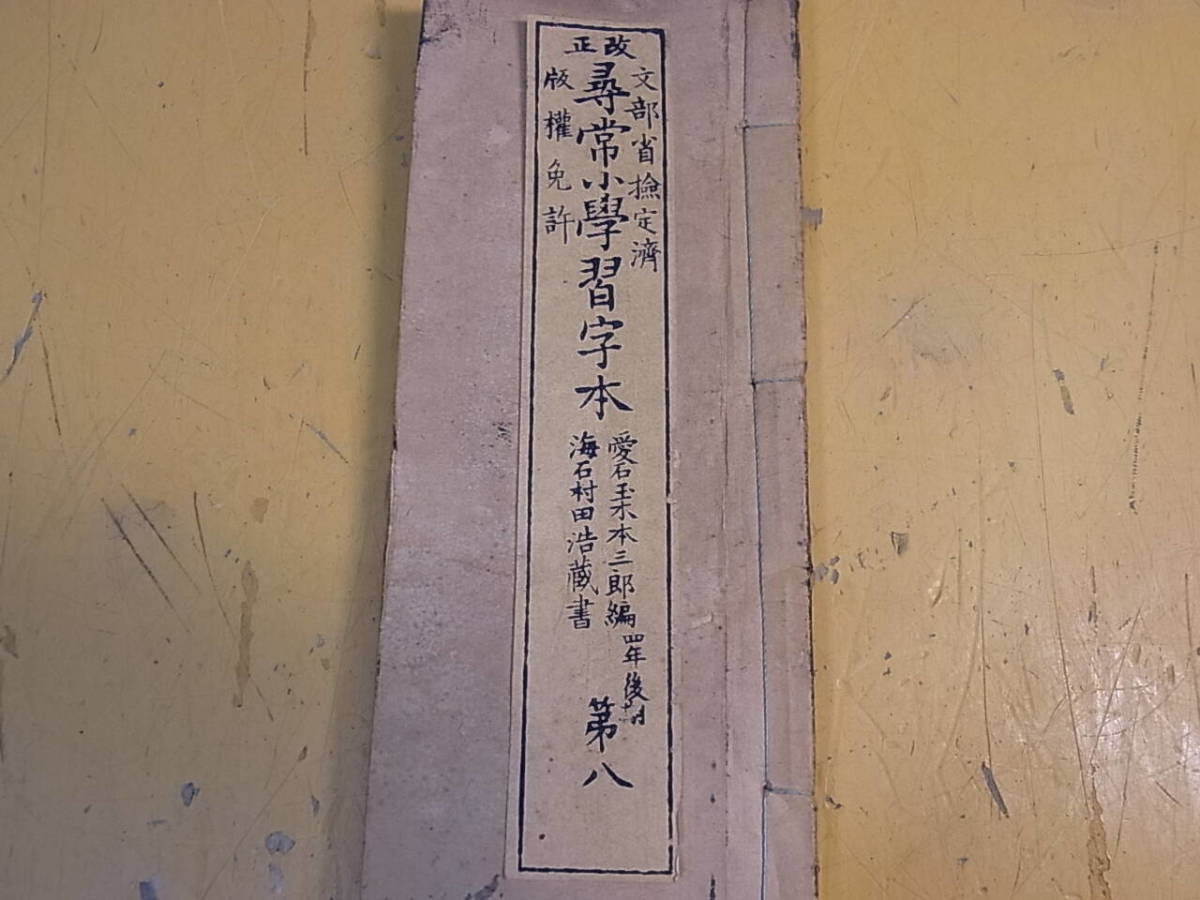 改正
文部省撿定濟
尋常小學習字本
版權免許
愛石玉木本三郎編
海石村田浩蔵書
四年後期
第八